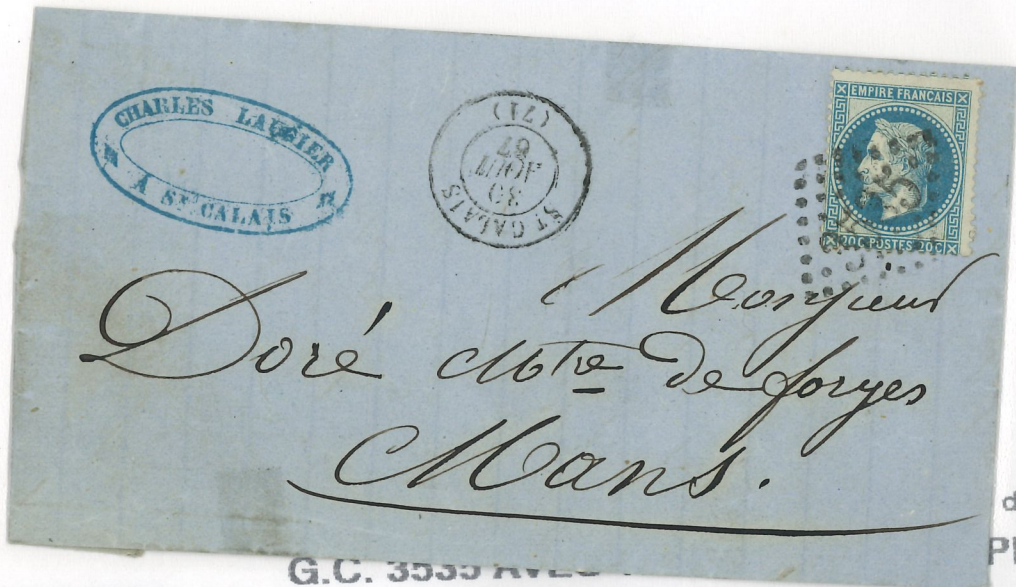 CHARLES LAURIER
À ST CALAIS
ST CALAIS
30
AOUT
67
(71)
EMPIRE FRANÇAIS
20C POSTES 20C
Monsieur
Doré Mtre de forges
Mans.
G.C. 3535 AVEC